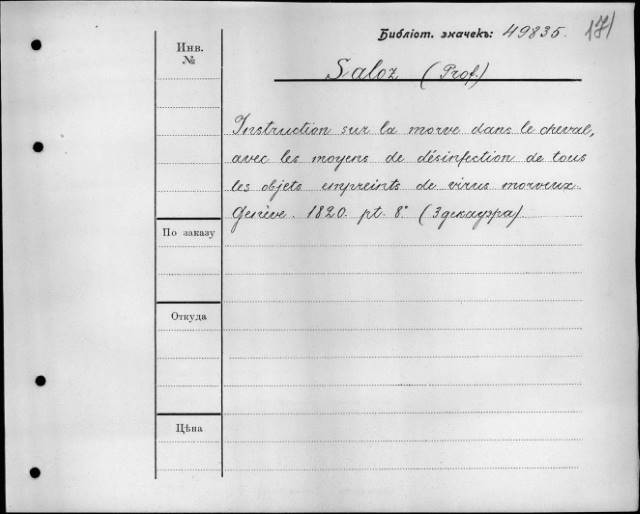 Библіот. значекъ: 49835. 171
Инв.
№
Saloz (Prof.)
Instruction sur la morve dans le cheval,
avec les moyens de désinfection de tous
les objets empreints de virus morveux.
Genève. 1820. pt. 8°
По заказу
Откуда
Цѣна